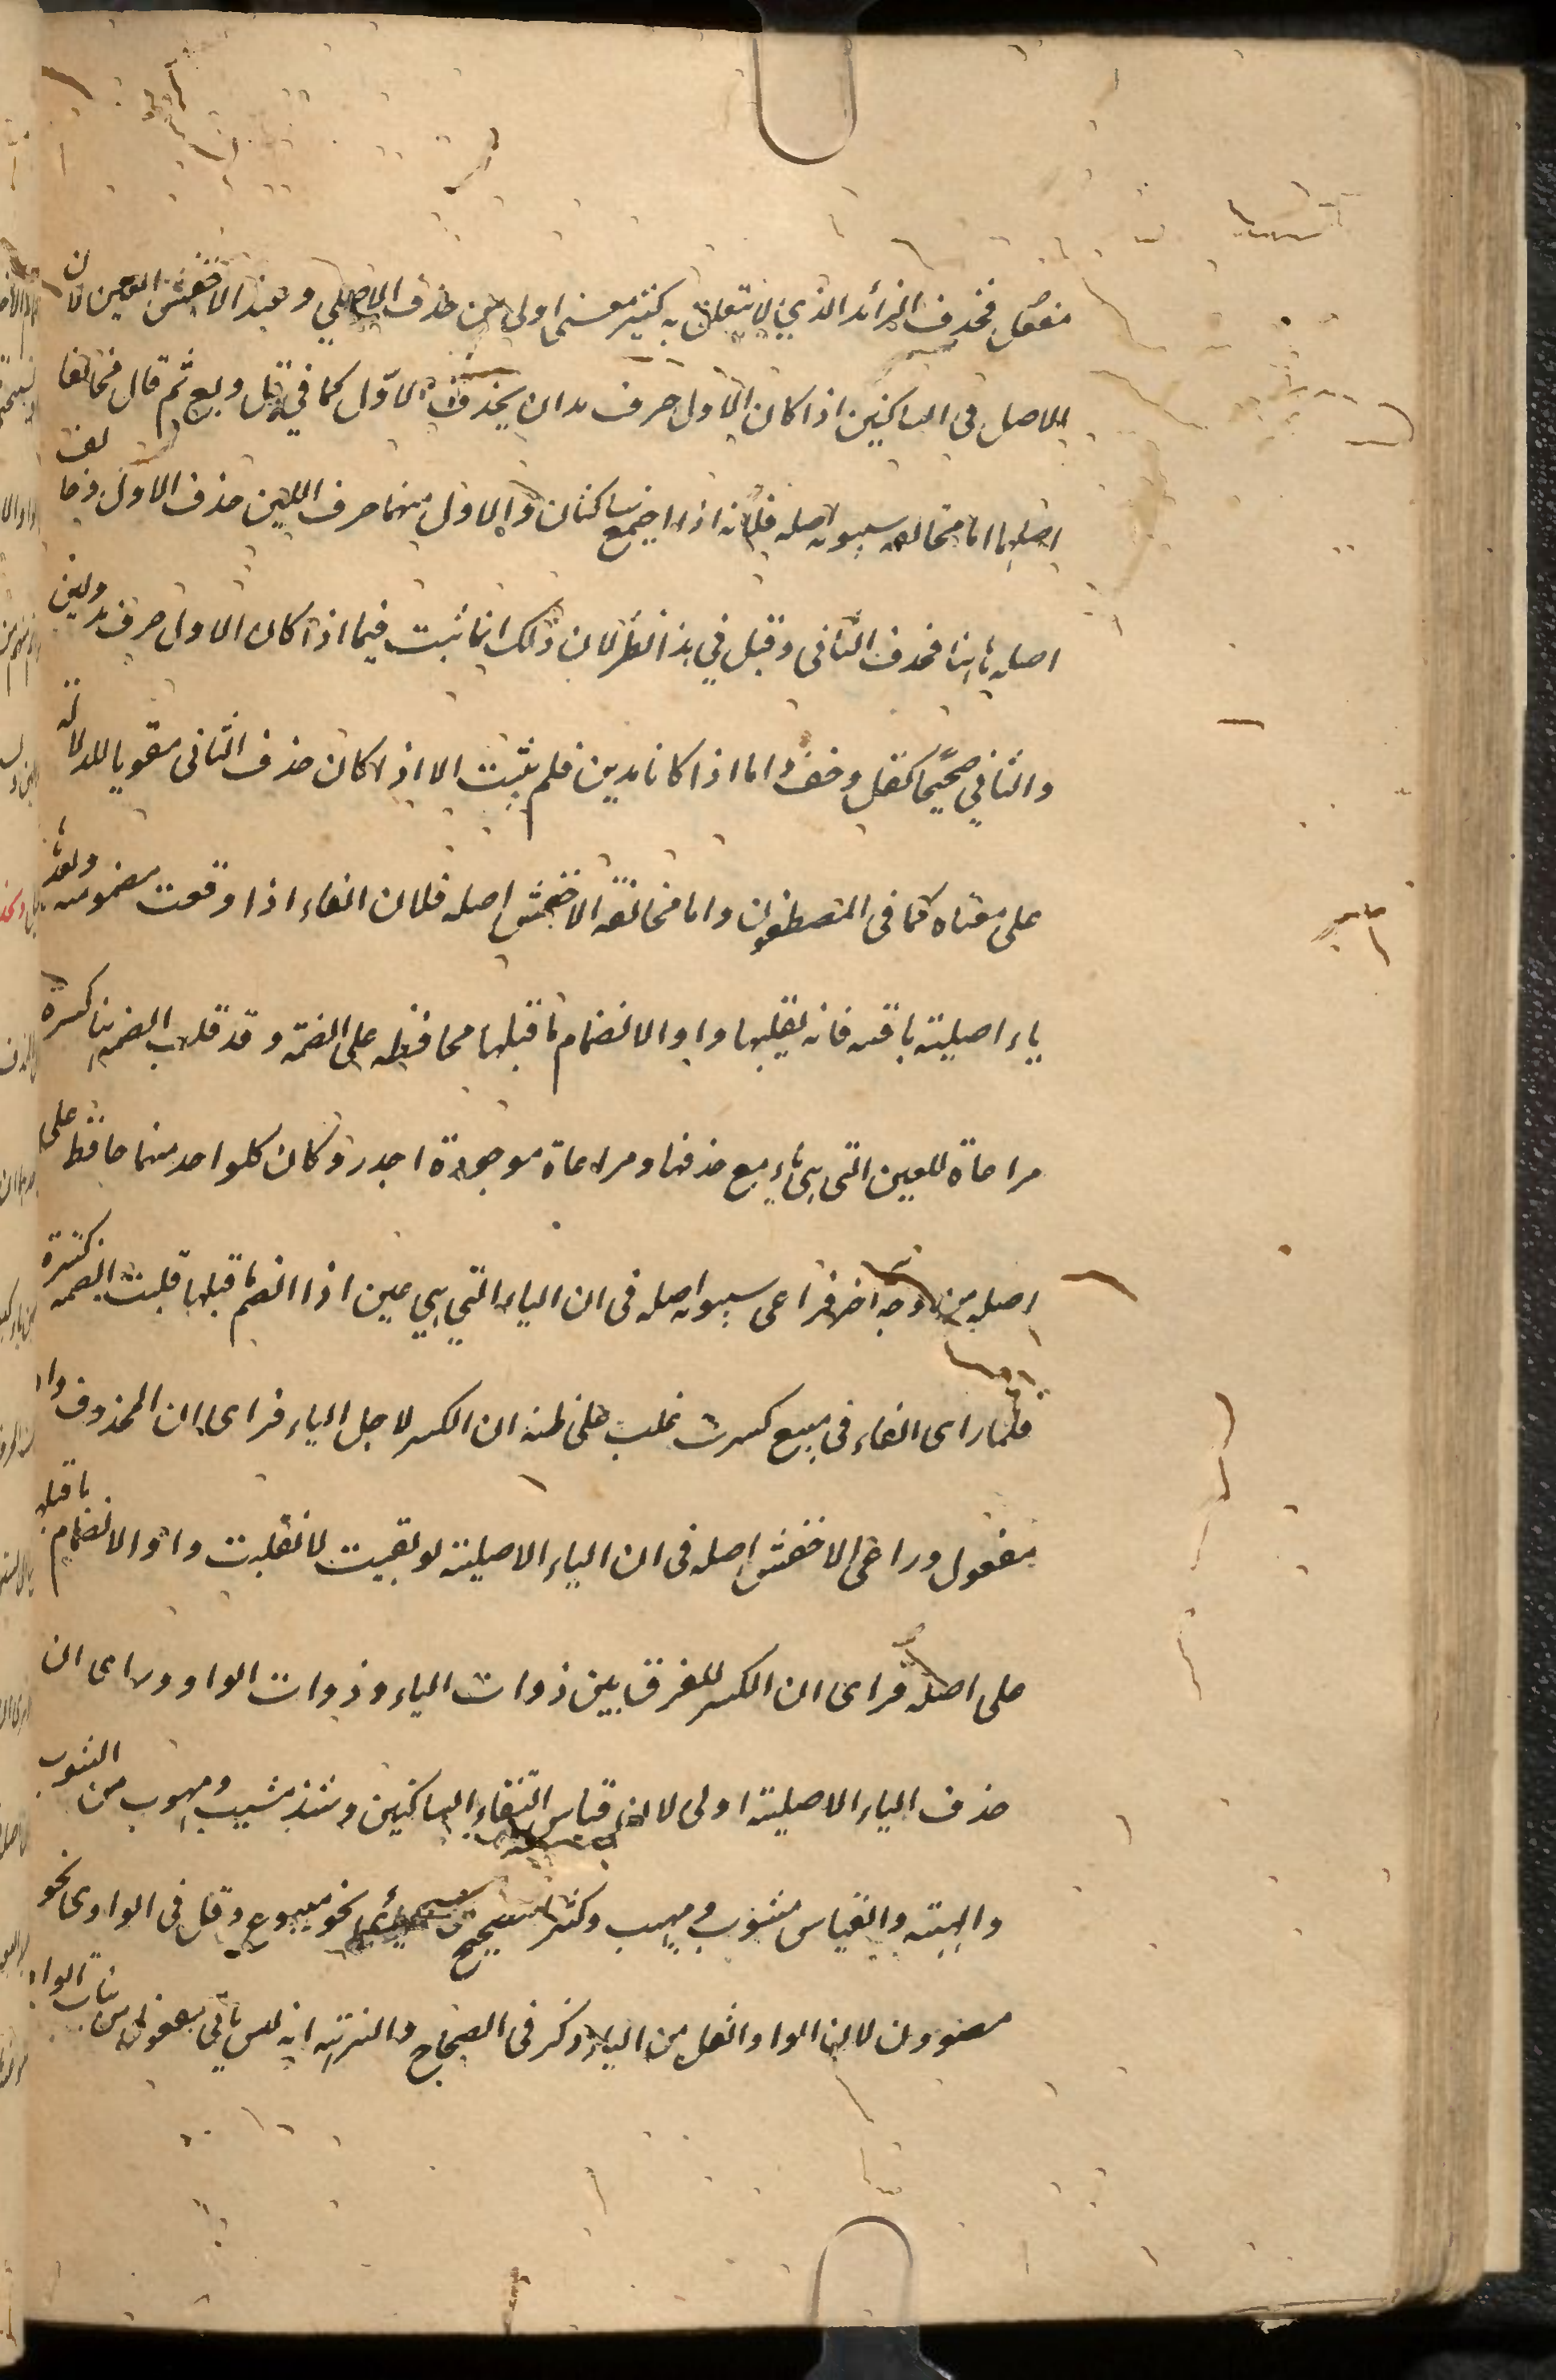 مفعل فحذف الزائد الذي لا يتعلق به كثير معنى اولى من حذف الاصلي وعند الاخفش العين لان
الاصل في الساكنين اذا كان الاول حرف مد ان يحذف الاول كما في قل وبع ثم قال فخالفا
اصليهما اما مخالفة سيبويه اصله فلانه اذا اجتمع ساكنان والاول منهما حرف اللين حذف الاول وخالف
اصله هاهنا فحذف الثاني وقيل في هذا نظر لان ذلك انما ثبت فيما اذا كان الاول حرف مد ولين
والثاني صحيحا كقل وخف واما اذا كانا مدين فلم يثبت الا اذا كان حذف الثاني مقويا لدلالته
على معناه كما في المصطفون واما مخالفة الاخفش اصله فلان الفاء اذا وقعت مضمومة وبعدها
ياء اصلية باقية فانه يقلبها واوا لانضمام ما قبلها محافظة على الضمة وقد قلب الضمة هنا كسرة
مراعاة للعين التي هي ياء مع حذفها ومراعاة موجودة اجدر وكان كلواحد منهما حافظ على
اصله من وجه اخر فراعى سيبويه اصله في ان الياء التي هي عين اذا انضم ما قبلها قلبت الضمة كسرة
فلما راى الفاء في مبيع كسرت غلب على ظنه ان الكسر لاجل الياء فراى ان المحذوف واو
مفعول وراعى الاخفش اصله في ان الياء الاصلية لو بقيت لانقلبت واوا لانضمام ما قبلها
على اصله فراى ان الكسر للفرق بين ذوات الياء وذوات الواو وراى ان
حذف الياء الاصلية اولى لان قياس التقاء الساكنين وشذ مشيب ومهوب من الشوب
والهيبة والقياس مشوب ومهيب وكثر تصحيح نحو مبيوع وقل في الواوى نحو
مصوون لان الواو اثقل من الياء وذكر في الصحاح انه ليس ياتي مفعول من بنات الواو